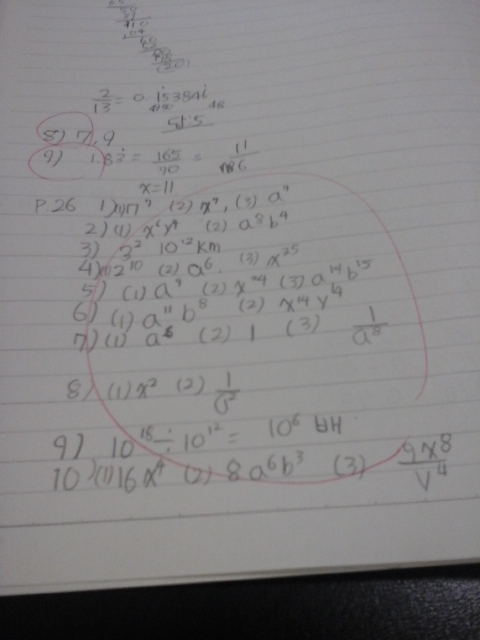 2/13 = 0.153846
8) 7, 9
9) 1.83 = 165/90 = 11/6
x=11
P.26 1) (1) 17⁹ (2) x⁹, (3) a⁹
2) (1) x⁶y⁹ (2) a⁸b⁴
3) 3² 10¹²km
4) (1) 2¹⁰ (2) a⁶. (3) x²⁵
5) (1) a⁹ (2) x²⁴ (3) a¹⁴b¹⁵
6) (1) a¹¹b⁸ (2) x¹⁴y¹⁴
7) (1) a⁶ (2) 1 (3) 1/a⁸
8) (1) x² (2) 1/a²
9) 10¹⁸ ÷ 10¹² = 10⁶ 배
10) (1) 16x⁴ (2) 8a⁶b³ (3) 9x⁸/y⁴